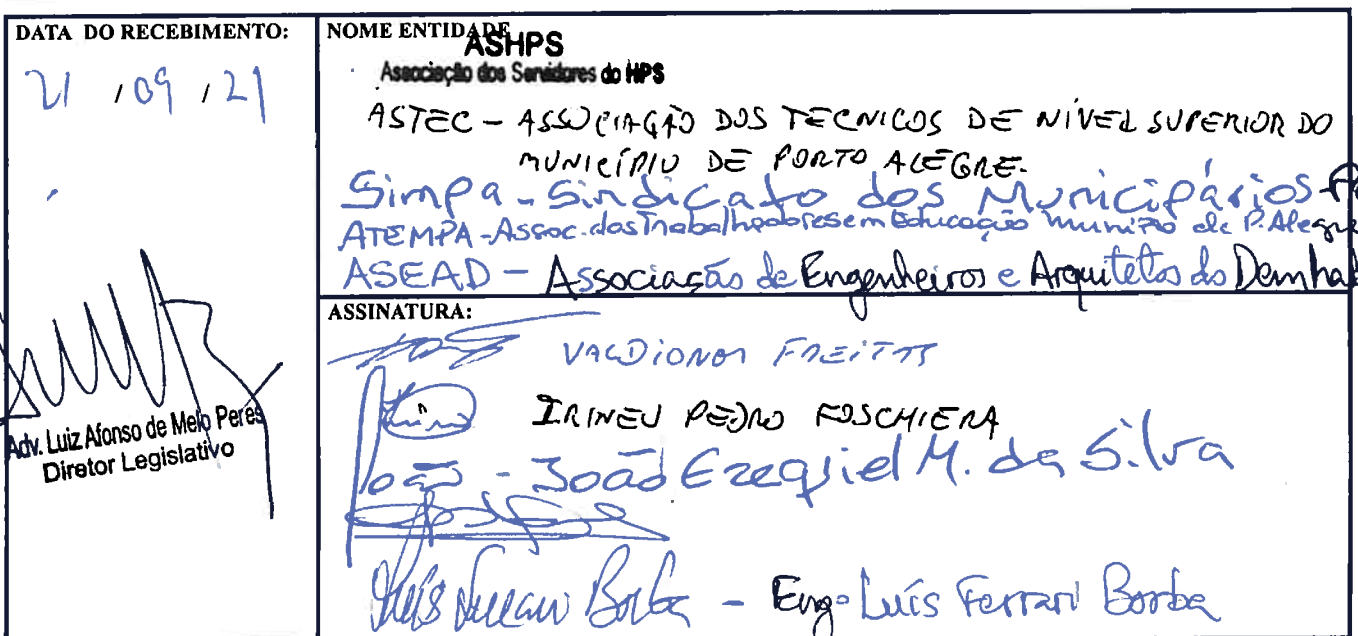 DATA DO RECEBIMENTO:
21 / 09 / 21
Adv. Luiz Afonso de Melo Peres
Diretor Legislativo
NOME ENTIDADE
ASHPS
Associação dos Servidores do HPS
ASTEC - ASSOCIAÇÃO DOS TECNICOS DE NÍVEL SUPERIOR DO
MUNICÍPIO DE PORTO ALEGRE.
Simpa - Sindicato dos Municipários
ATEMPA - Assoc. dos Trabalhadores em Educação de P. Alegre
ASEAD - Associação de Engenheiros e Arquitetos do Demhab
ASSINATURA:
FREITAS
IRINEU PEDRO FOSCHIERA
João - João Ezequiel M. da Silva
Luís Ferrari Borba - Engº Luís Ferrari Borba